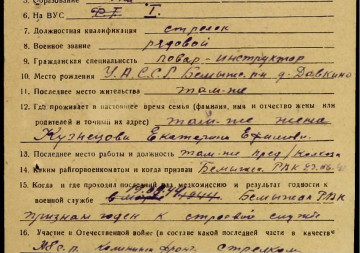 5. Образование
6. На ВУС
7. Должностная квалификация стрелок
8. Военное звание рядовой
9. Гражданская специальность повар-инструктор
10. Место рождения У.А.С.С.Р. Бемыжс. рн. д.
11. Последнее место жительства там-же
12. Где проживает в настоящее время семья (фамилия, имя и отчество жены или
родителей и точный их адрес) там-же жена
Кузнецова Екатерина Ефимовн.
13. Последнее место работы и должность там-же пред/колхоза
14. Каким райгорвоенкоматом и когда призван Бемыжск. РВК
15. Когда и где проходил последний раз медкомиссию и результат годности к
военной службе Бемыжск РВК
признан годен к строевой службе
16. Участие в Отечественной войне (в составе какой последней части в качестве
фронт стрелком